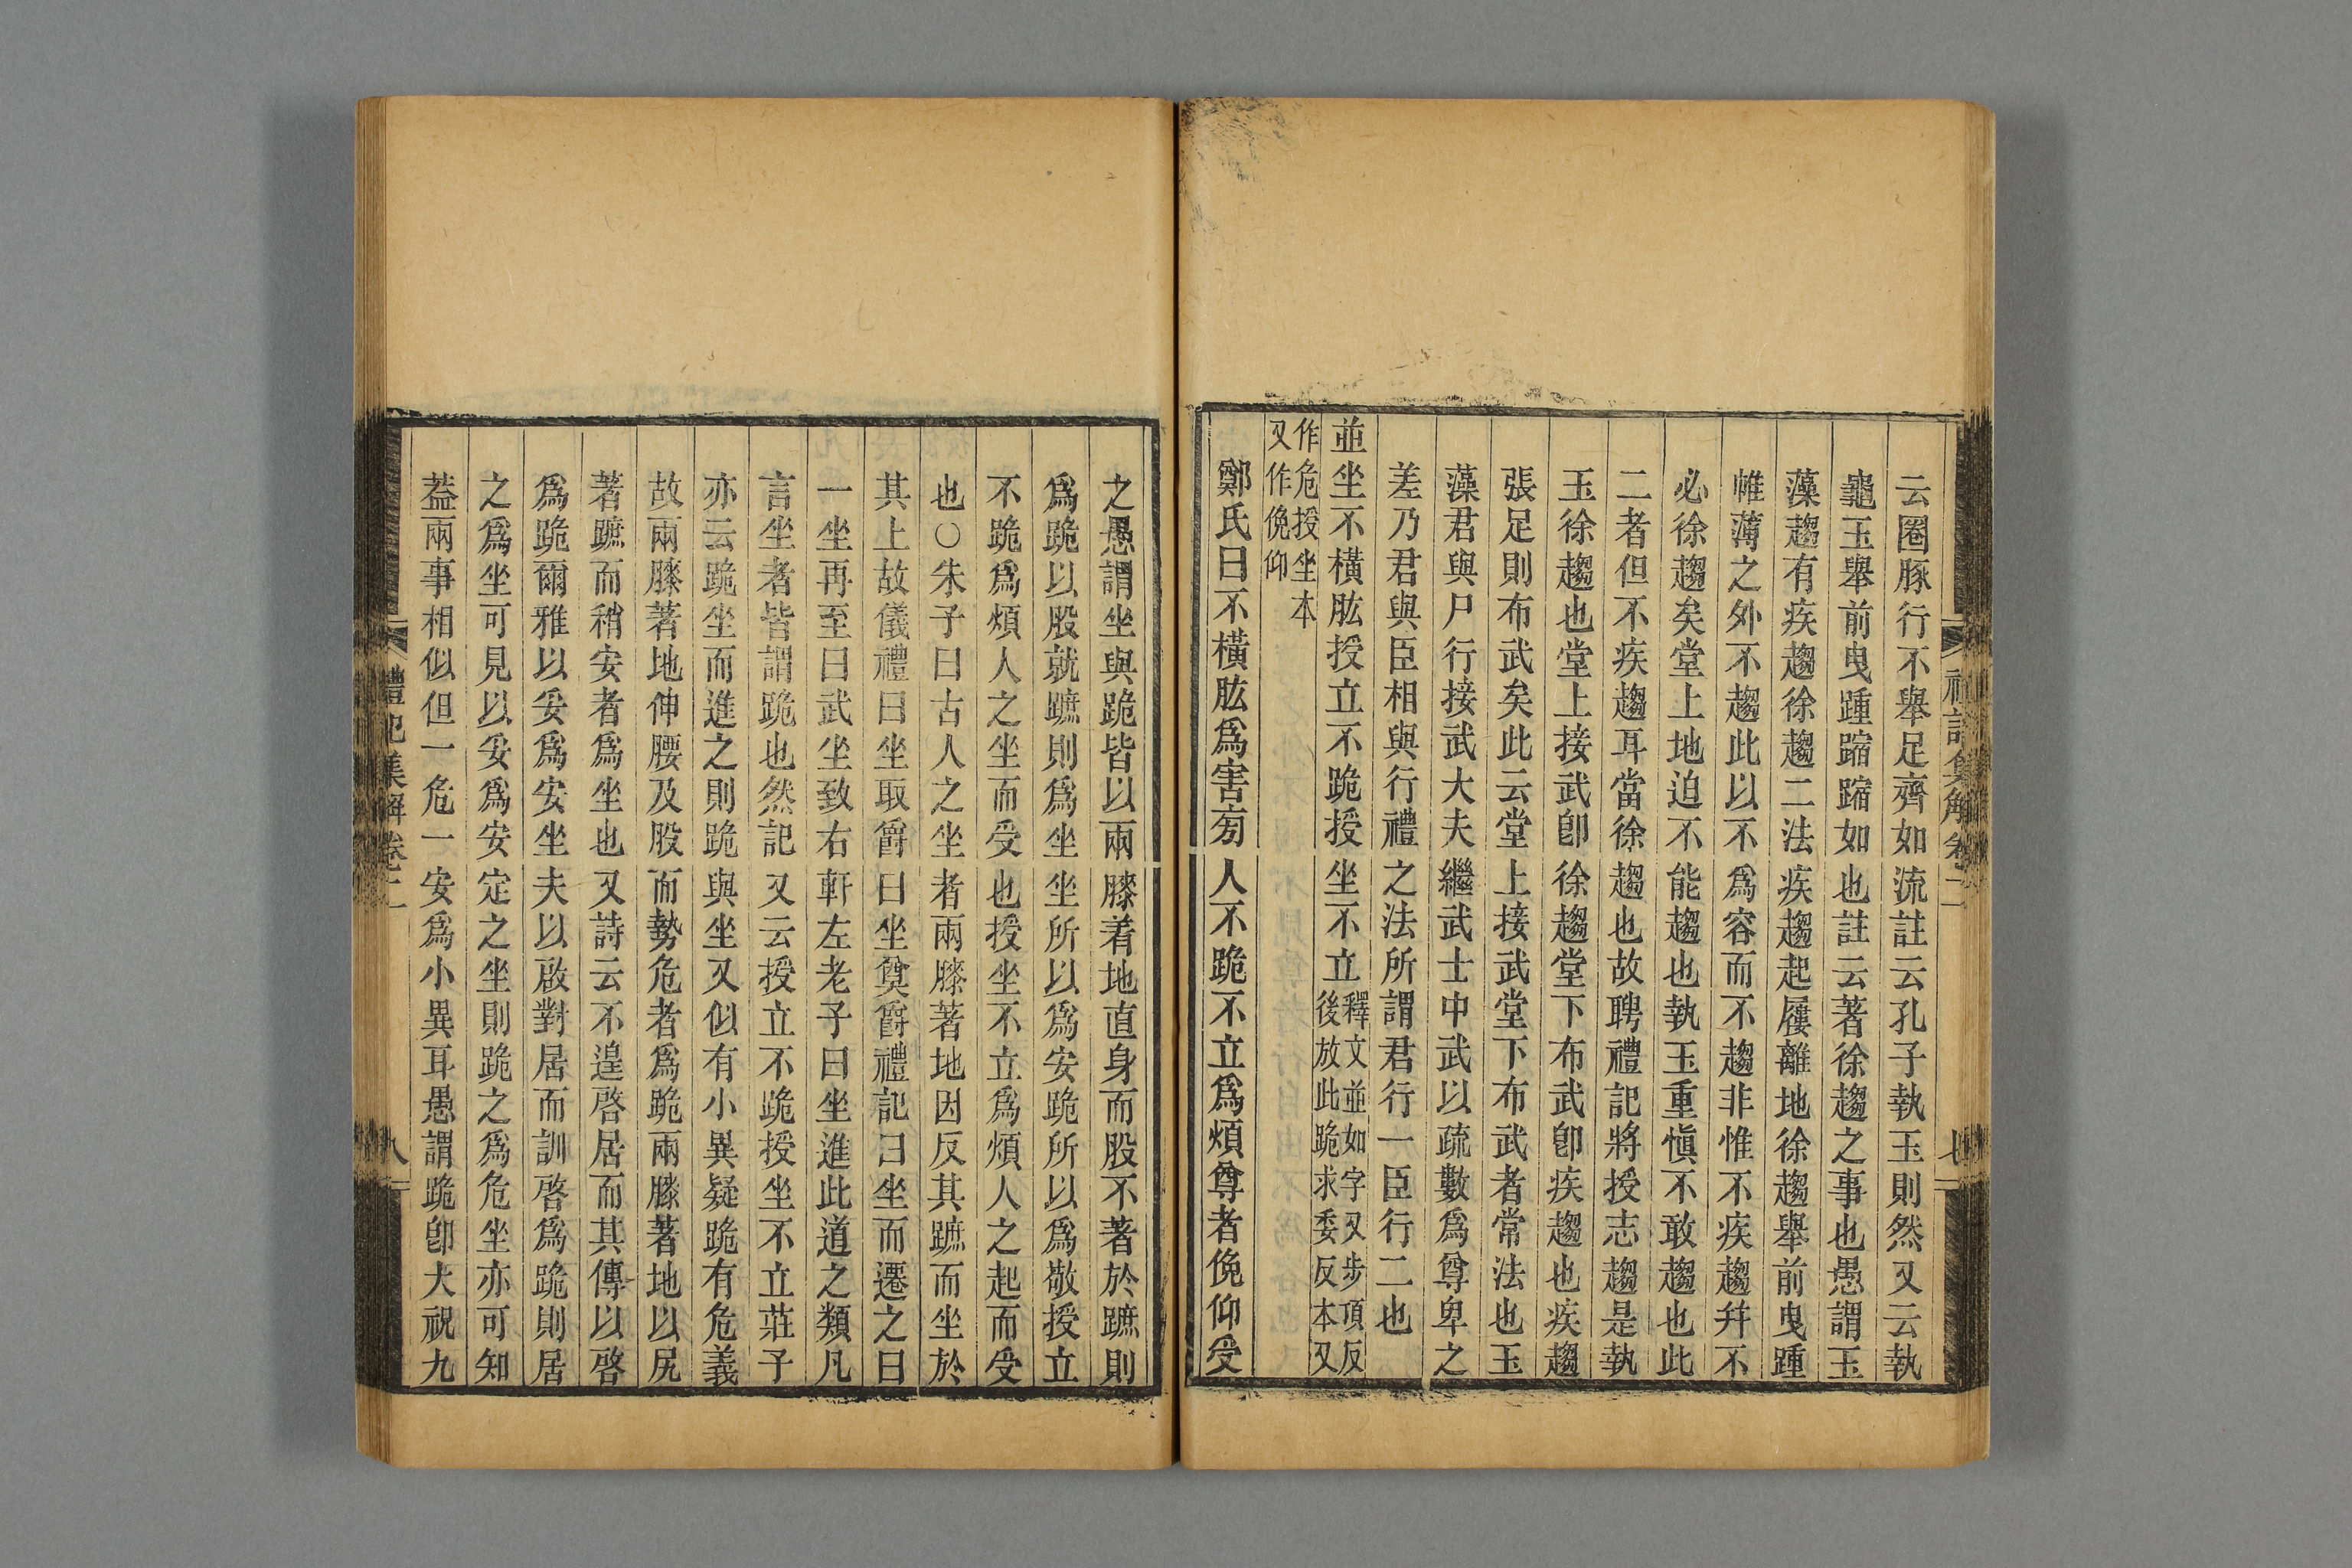 云圈豚行不舉足齊如流註云孔子執玉則然又云執
龜玉舉前曳踵蹜蹜如也註云著徐趨之事也愚謂玉
藻趨有疾趨徐趨二法疾趨起屨離地徐趨舉前曳踵
帷薄之外不趨此以不爲容而不趨非惟不疾趨幷不
必徐趨矣堂上地迫不能趨也執玉重愼不敢趨也此
二者但不疾趨耳當徐趨也故聘禮記將授志趨是執
玉徐趨也堂上接武卽徐趨堂下布武卽疾趨也疾趨
張足則布武矣此云堂上接武堂下布武者常法也玉
藻君與尸行接武大夫繼武士中武以疏數爲尊卑之
差乃君與臣相與行禮之法所謂君行一臣行二也
並坐不橫肱授立不跪授坐不立釋文並如字又步頂反
後放此跪求委反本又
作危授坐本
又作俛仰
鄭氏曰不橫肱爲害旁人不跪不立爲煩尊者俛仰受
禮記集解卷二
七
之愚謂坐與跪皆以兩膝着地直身而股不著於蹠則
爲跪以股就蹠則爲坐坐所以爲安跪所以爲敬授立
不跪爲煩人之坐而受也授坐不立爲煩人之起而受
也○朱子曰古人之坐者兩膝著地因反其蹠而坐於
其上故儀禮曰坐取爵曰坐奠爵禮記曰坐而遷之曰
一坐再至曰武坐致右軒左老子曰坐進此道之類凡
言坐者皆謂跪也然記又云授立不跪授坐不立莊子
亦云跪坐而進之則跪與坐又似有小異疑跪有危義
故兩膝著地伸腰及股而勢危者爲跪兩膝著地以尻
著蹠而稍安者爲坐也又詩云不遑啓居而其傳以啓
爲跪爾雅以妥爲安坐夫以啟對居而訓啓爲跪則居
之爲坐可見以妥爲安定之坐則跪之爲危坐亦可知
葢兩事相似但一危一安爲小異耳愚謂跪卽大祝九
禮記集解卷二
八